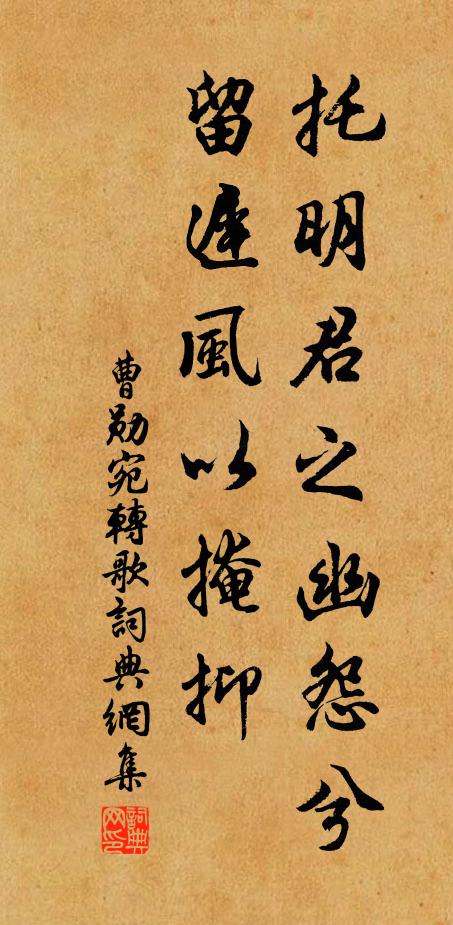 托明君之幽怨兮
留遲風以掩抑
曹勛宛轉歌詞典網集
詞典网印